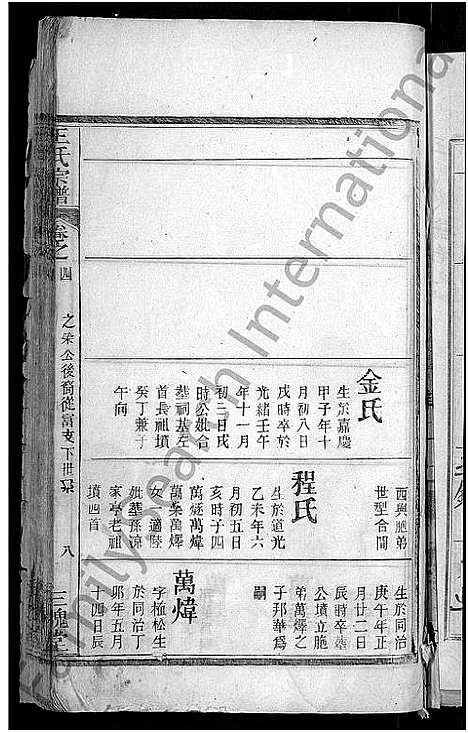 王氏宗譜
卷之四
之榮公後裔從富支下世系
八
三槐堂
金氏
生於嘉慶
甲子年十
月初八日
戌時卒於
光緒壬午
年十一月
初三日戌
時公妣合
墓祠基左
首長祖墳
癸丁兼子
午向
西與胞弟
世型合間
程氏
生於道光
乙未年六
月初五日
亥時子四
萬燧萬煒
萬榘萬燡
女一適陸
妣葬孫涼
家亭老祖
墳四首
生於同治
庚午年正
月廿二日
辰時卒葬
公墳立胞
弟萬燡之
子邦華爲
嗣
萬煒
字極松生
於同治丁
卯年五月
十四日辰
Familysearch International